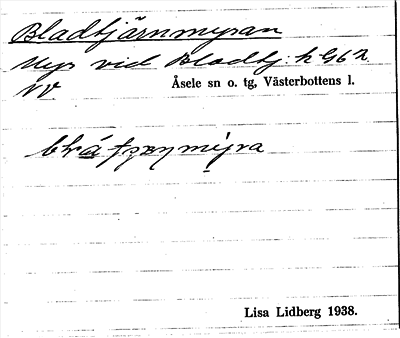 Bladtjärnmyran
Myr vid Bladtj. k G6 2
NV
Åsele sn o. tg, Västerbottens l.
Lisa Lidberg 1938.